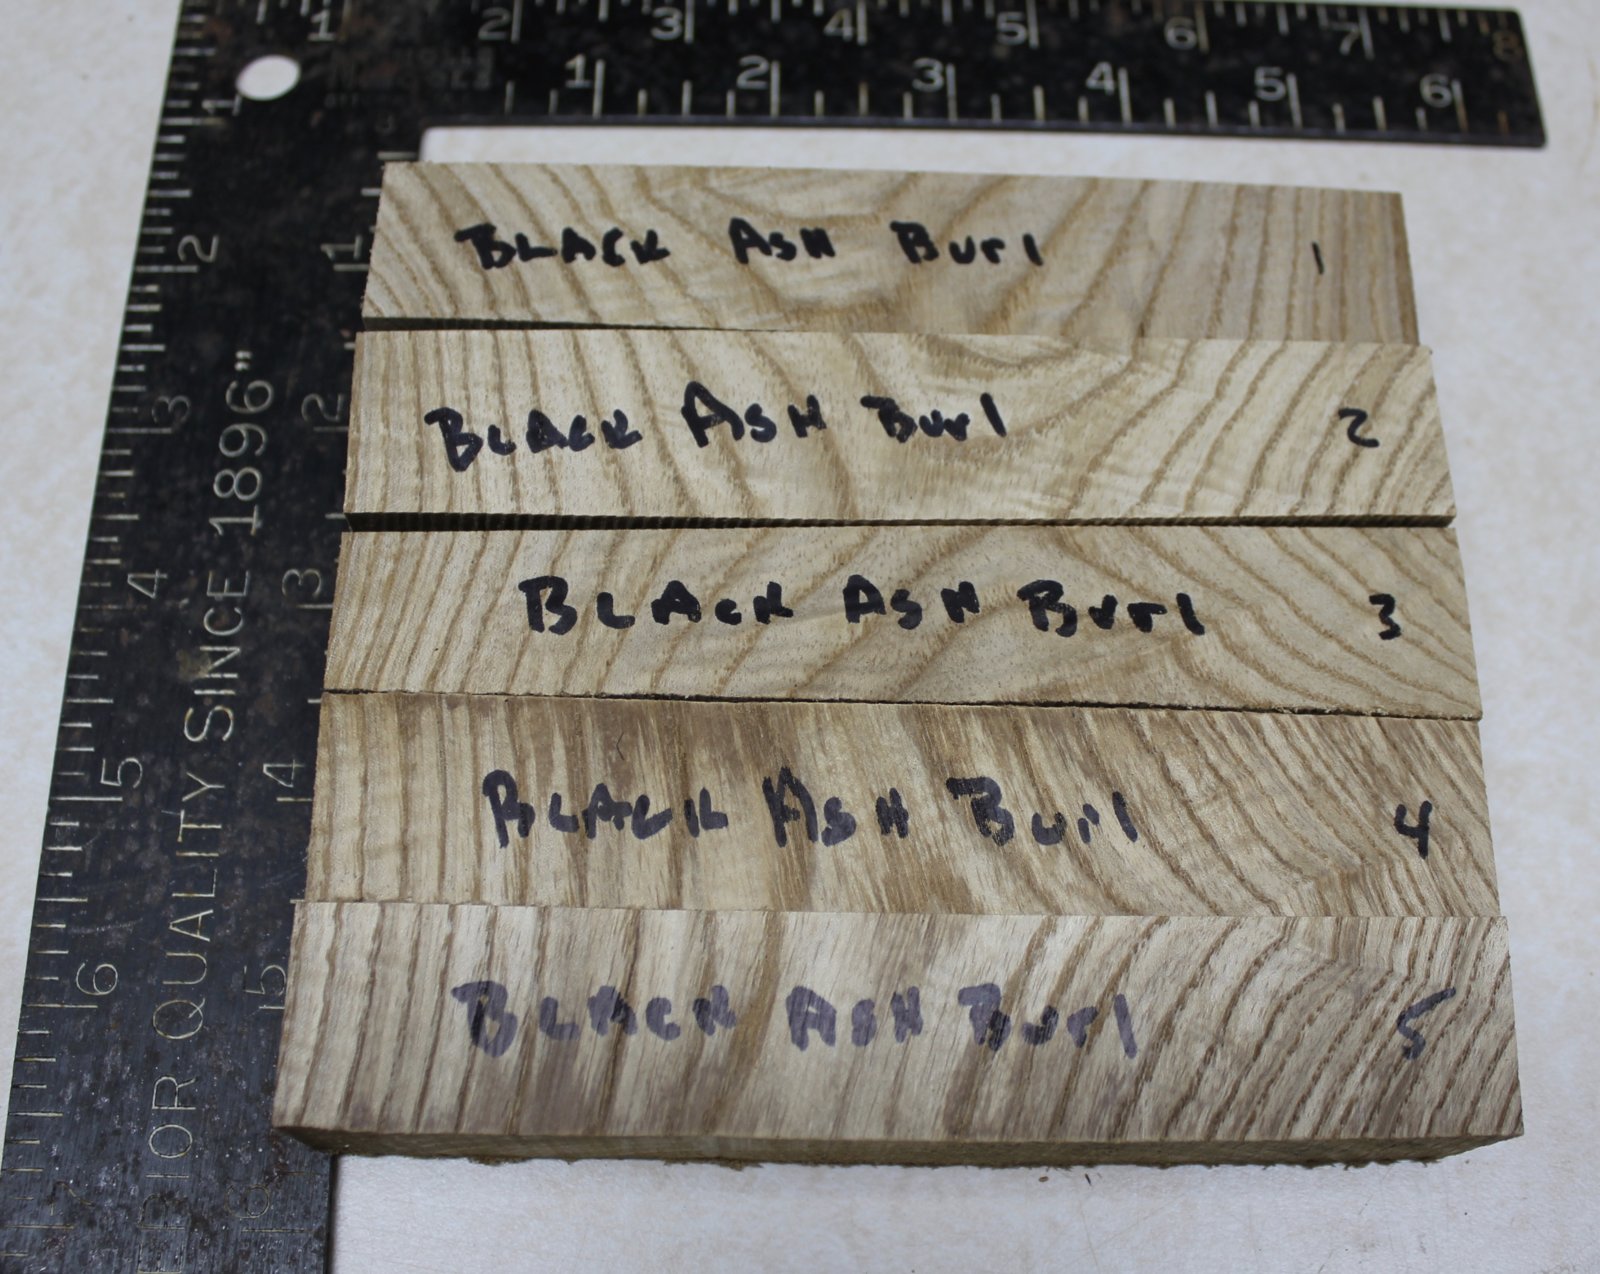 1 2 3 4 5 6 7 8
1 2 3 4 5 6
1 2 3 4 5 6
1 2 3 4 5 6
RIOR QUALITY SINCE 1896"
BLACK ASH Burl 1
BLACK ASH Burl 2
BLACK ASH Burl 3
BLACK ASH Burl 4
BLACK ASH Burl 5